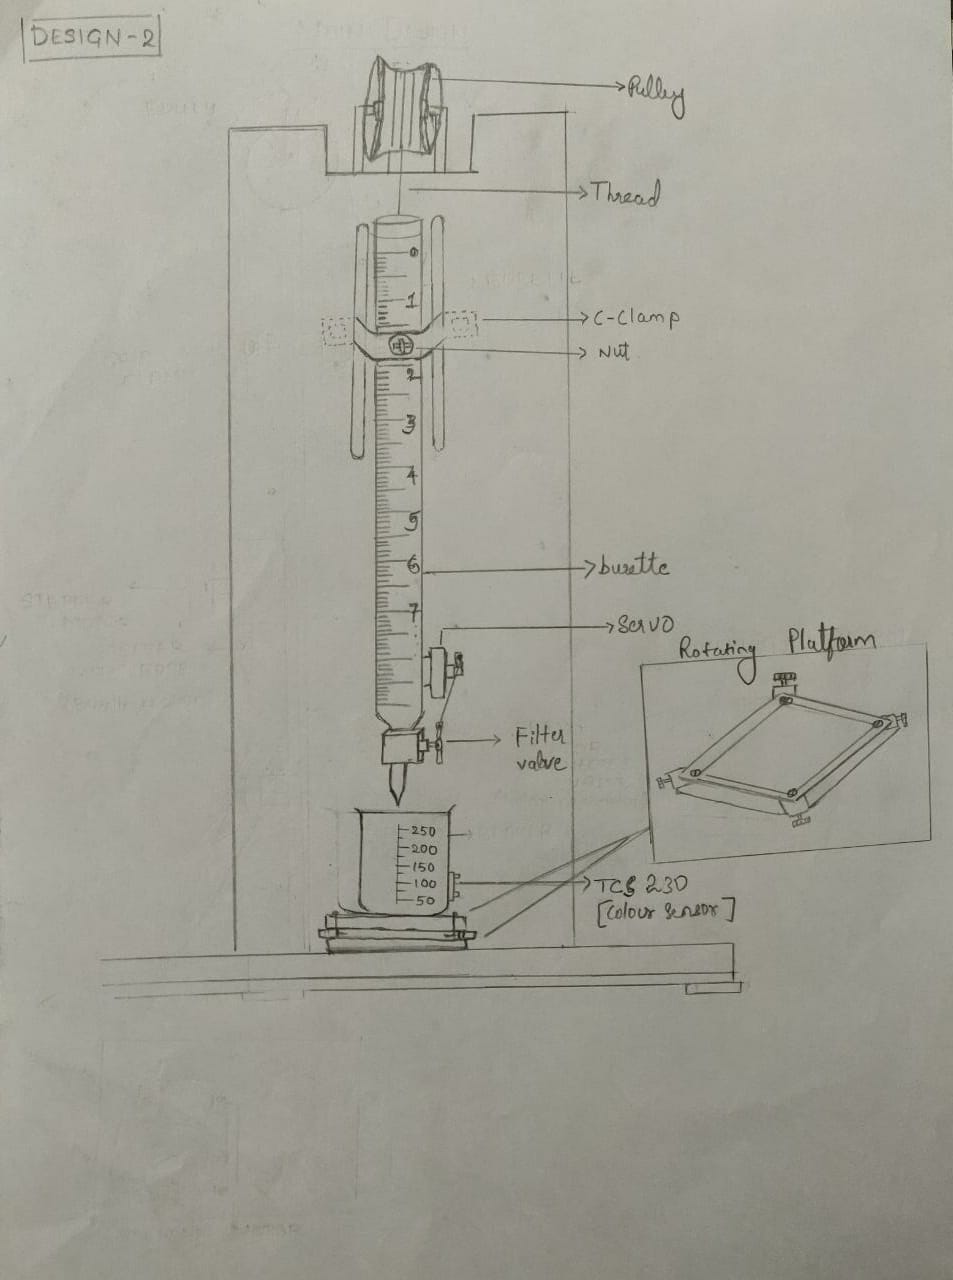 DESIGN-2
Pulley
Thread
0
1
C-Clamp
Nut
2
3
4
5
6
burette
7
Servo
Rotating Platform
Filter
valve
250
200
150
100
50
TCS 230
[Colour Sensor]